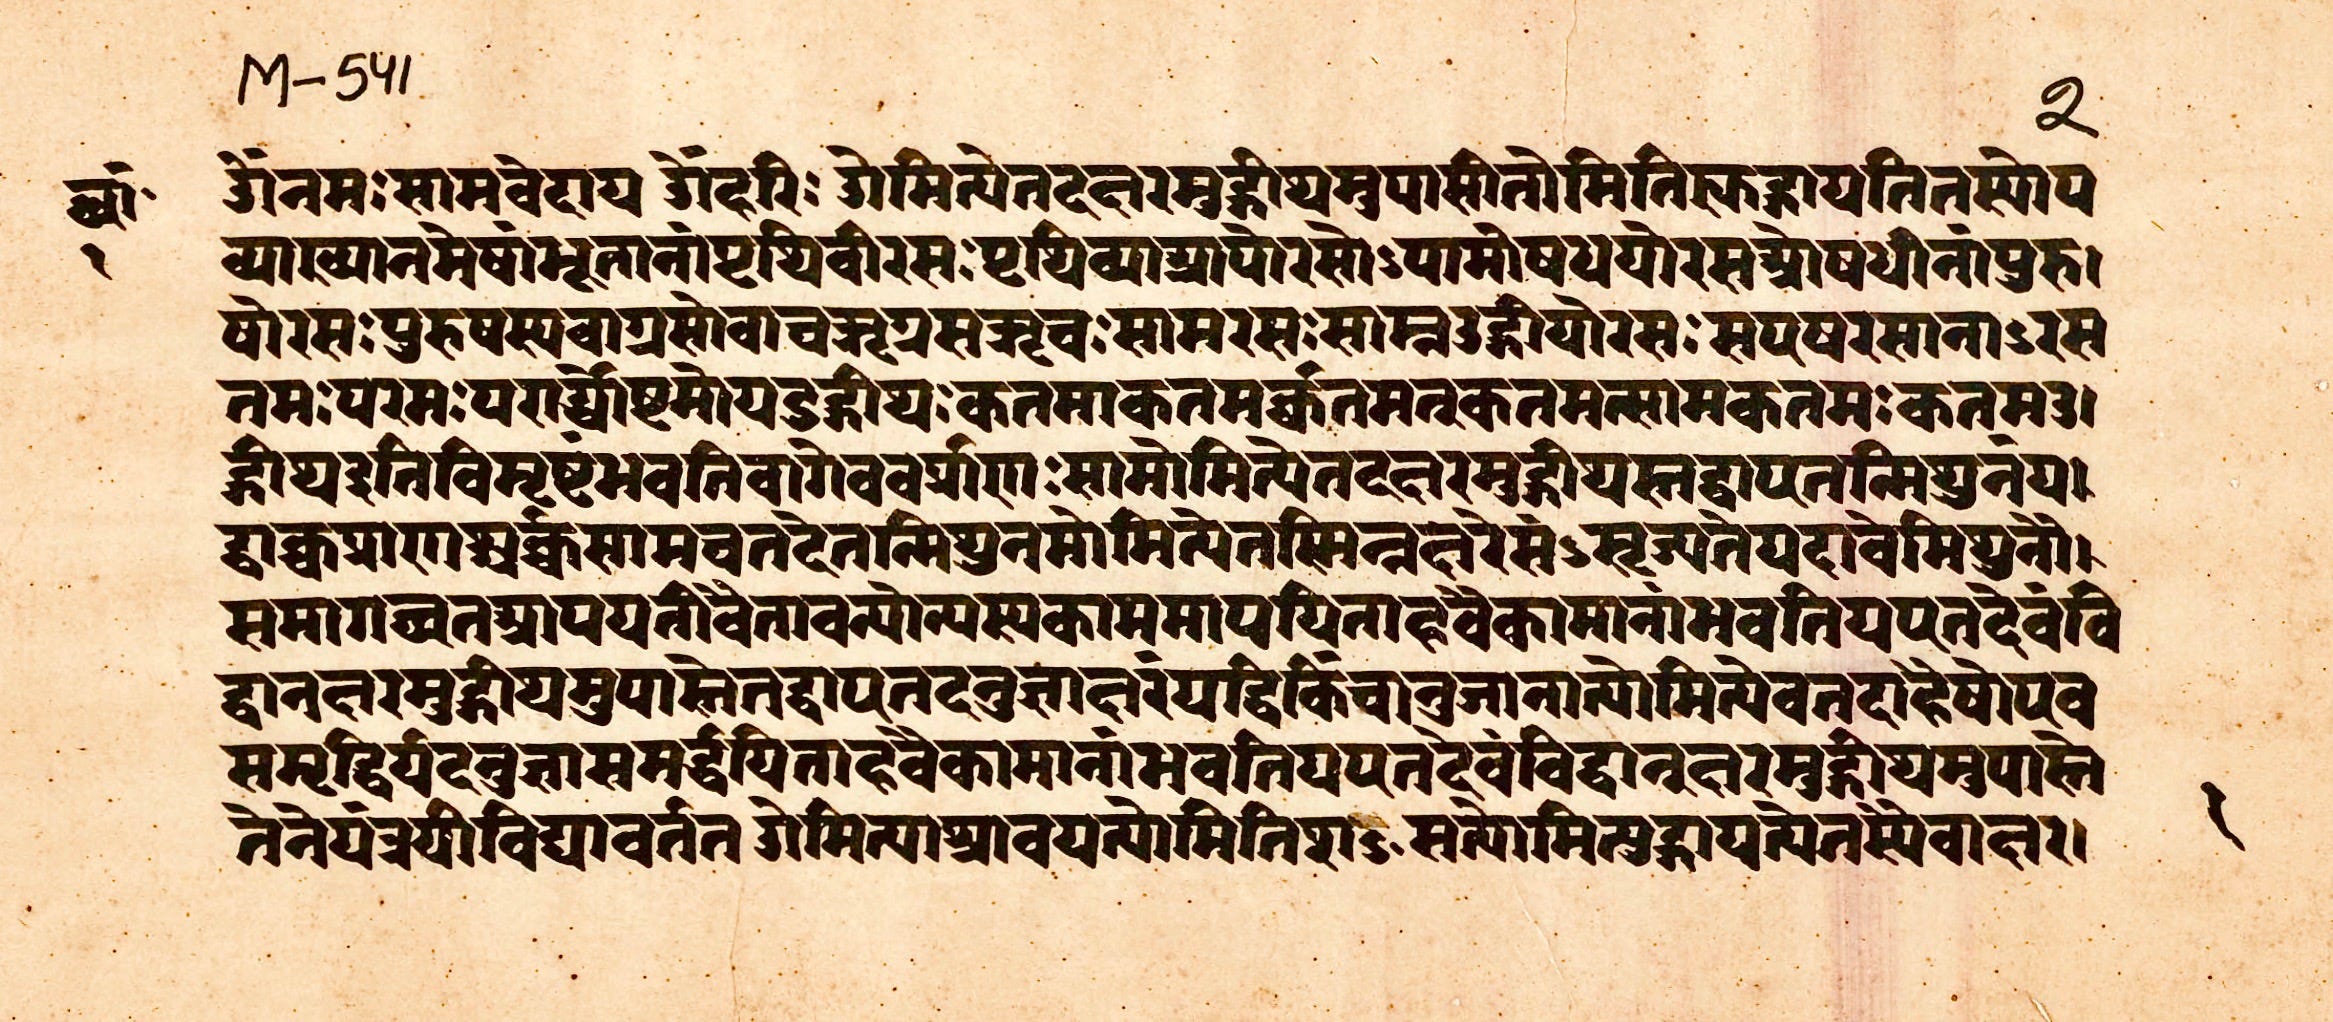 M-541
२
छां॰
१
ॐनमःसामवेदाय ॐहरिः ओमित्येतदक्षरमुद्गीथमुपासीतोमितिह्युद्गायतितस्योप
व्याख्यानमेषांभूतानांपृथिवीरसःपृथिव्याआपोरसोऽपामोषधयोरसओषधीनांपुरु।
षोरसःपुरुषस्यवाग्रसोवाचऋग्रसऋचःसामरसःसाम्नउद्गीथोरसःसएषरसानाऽरस
तमःपरमःपरार्द्ध्योष्टमोयउद्गीथःकतमाकतमर्क्कतमत्कतमत्सामकतमःकतमउ।
द्गीथइतिविमृष्टंभवतिवागेवर्क्प्राणःसामोमित्येतदक्षरमुद्गीथस्तद्वाएतन्मिथुनंय।
द्वाक्चप्राणश्चर्क्चसामचतदेतन्मिथुनमोमित्येतस्मिन्नक्षरेसंऽसृज्यतेयदावैमिथुनौ।
समागच्छतआपयतोवैतावन्योन्यस्यकाममापयिताहवैकामानांभवतियएतदेवंवि
द्वानक्षरमुद्गीथमुपास्तेतद्वाएतदनुज्ञाक्षरंयद्धिकिंचानुजानात्योमित्येवतदाहैषोएव
समृद्धिर्यदनुज्ञासमर्द्धयिताहवैकामानांभवतियएतदेवंविद्वानक्षरमुद्गीथमुपास्ते
तेनेयंत्रयीविद्यावर्ततओमित्याश्रावयत्योमितिशऽसत्योमित्युद्गायत्येतस्यैवाक्षर।
१